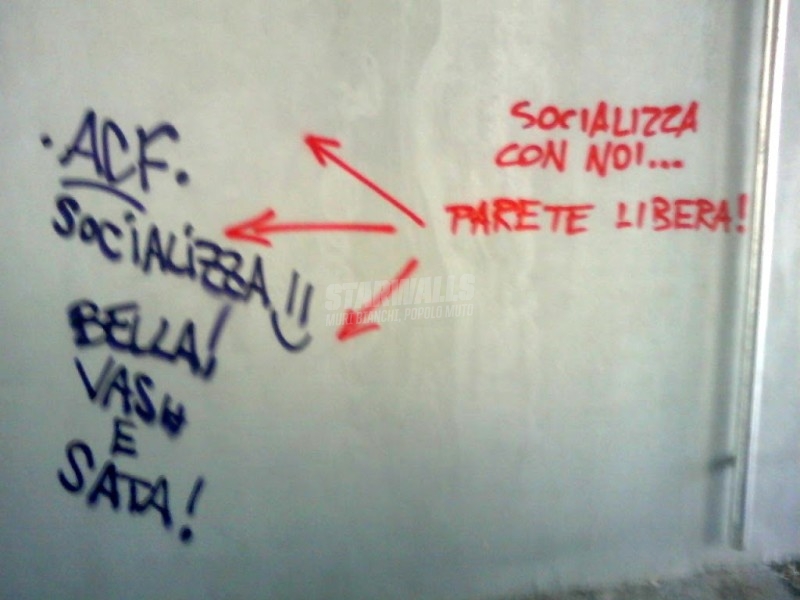 SOCIALIZZA
CON NOI...
PARETE LIBERA!
·ACF.
SOCIALIZZA!!
BELLA!
VASH
E
SATA!
STARWALLS
MURI BIANCHI, POPOLO MUTO